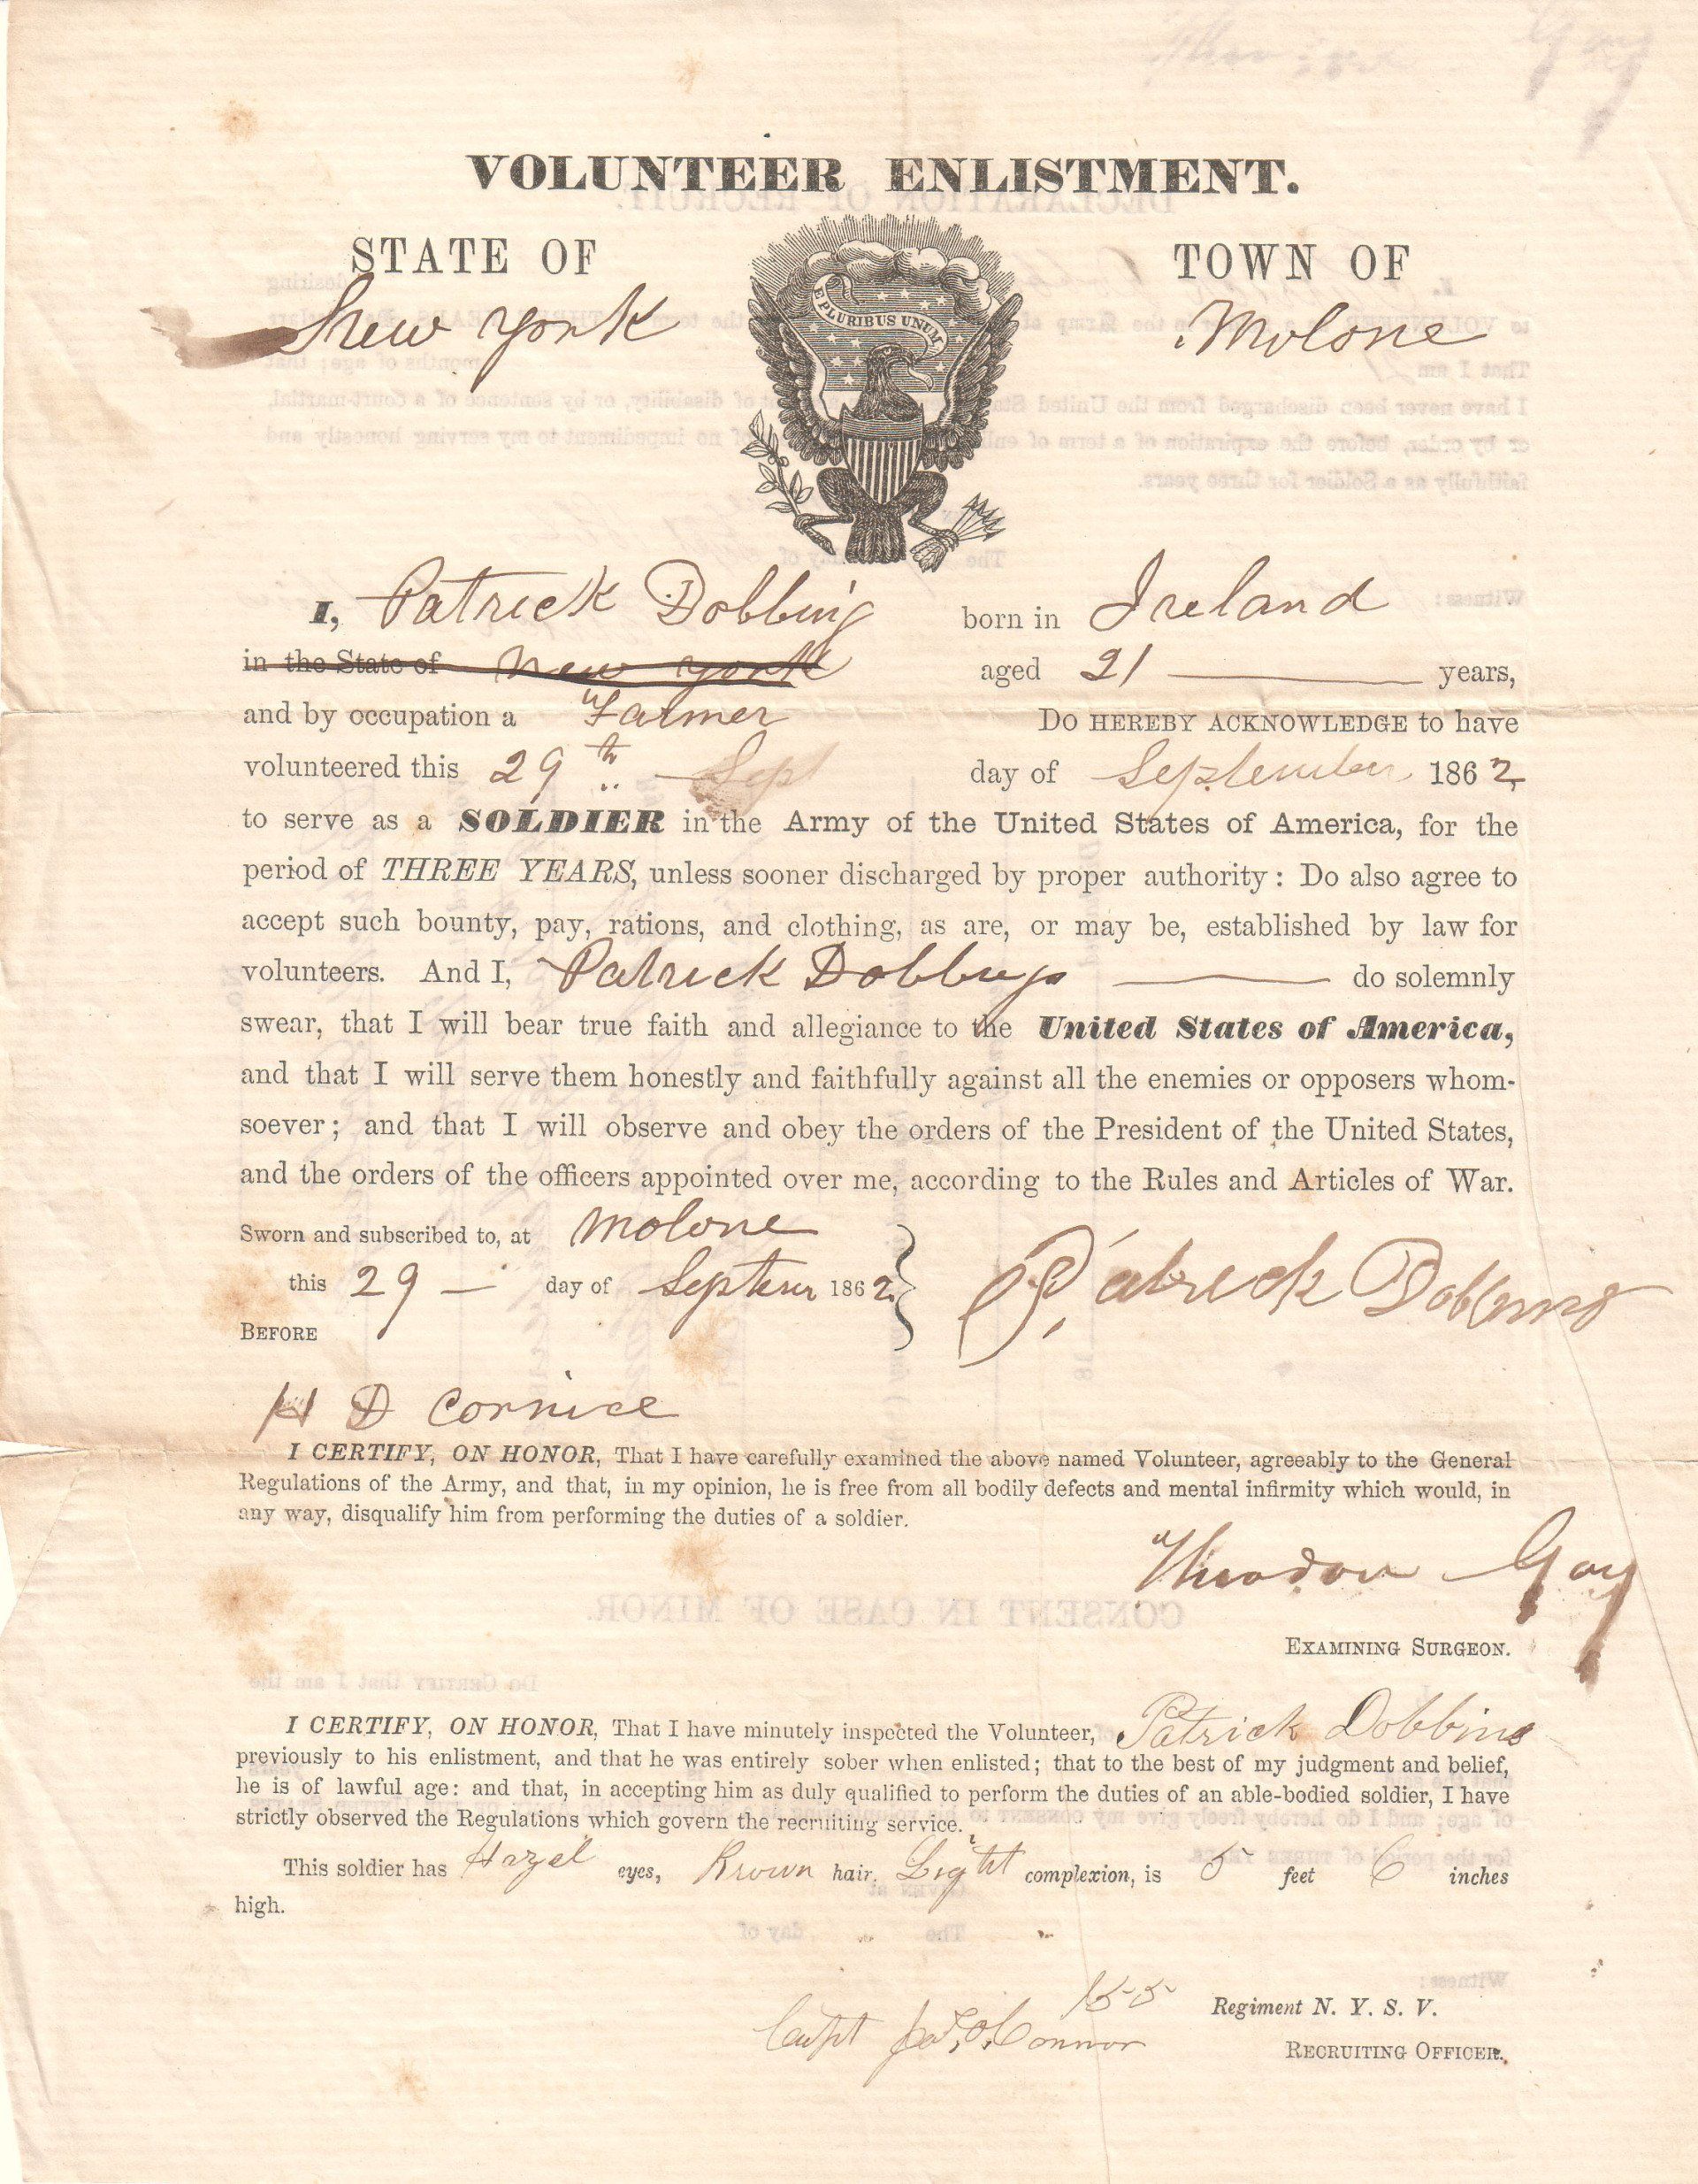 VOLUNTEER ENLISTMENT.
STATE OF
TOWN OF
New York
Molone
E PLURIBUS UNUM
I, Patrick Dobbing born in Ireland
in the State of New York aged 21 years,
and by occupation a Farmer Do HEREBY ACKNOWLEDGE to have
volunteered this 29th Sept day of September 1862
to serve as a SOLDIER in the Army of the United States of America, for the
period of THREE YEARS, unless sooner discharged by proper authority: Do also agree to
accept such bounty, pay, rations, and clothing, as are, or may be, established by law for
volunteers. And I, Patrick do solemnly
swear, that I will bear true faith and allegiance to the United States of America,
and that I will serve them honestly and faithfully against all the enemies or opposers whom-
soever; and that I will observe and obey the orders of the President of the United States,
and the orders of the officers appointed over me, according to the Rules and Articles of War.
Sworn and subscribed to, at Molone
this 29 day of 1862
Patrick
BEFORE
H D
I CERTIFY, ON HONOR, That I have carefully examined the above named Volunteer, agreeably to the General
Regulations of the Army, and that, in my opinion, he is free from all bodily defects and mental infirmity which would, in
any way, disqualify him from performing the duties of a soldier.
Theodore Gay
EXAMINING SURGEON.
I CERTIFY, ON HONOR, That I have minutely inspected the Volunteer, Patrick Dobbins
previously to his enlistment, and that he was entirely sober when enlisted; that to the best of my judgment and belief,
he is of lawful age: and that, in accepting him as duly qualified to perform the duties of an able-bodied soldier, I have
strictly observed the Regulations which govern the recruiting service.
This soldier has Hazel eyes, Brown hair. Light complexion, is 5 feet 6 inches
high.
155 Regiment N. Y. S. V.
Capt O'Connor RECRUITING OFFICER.